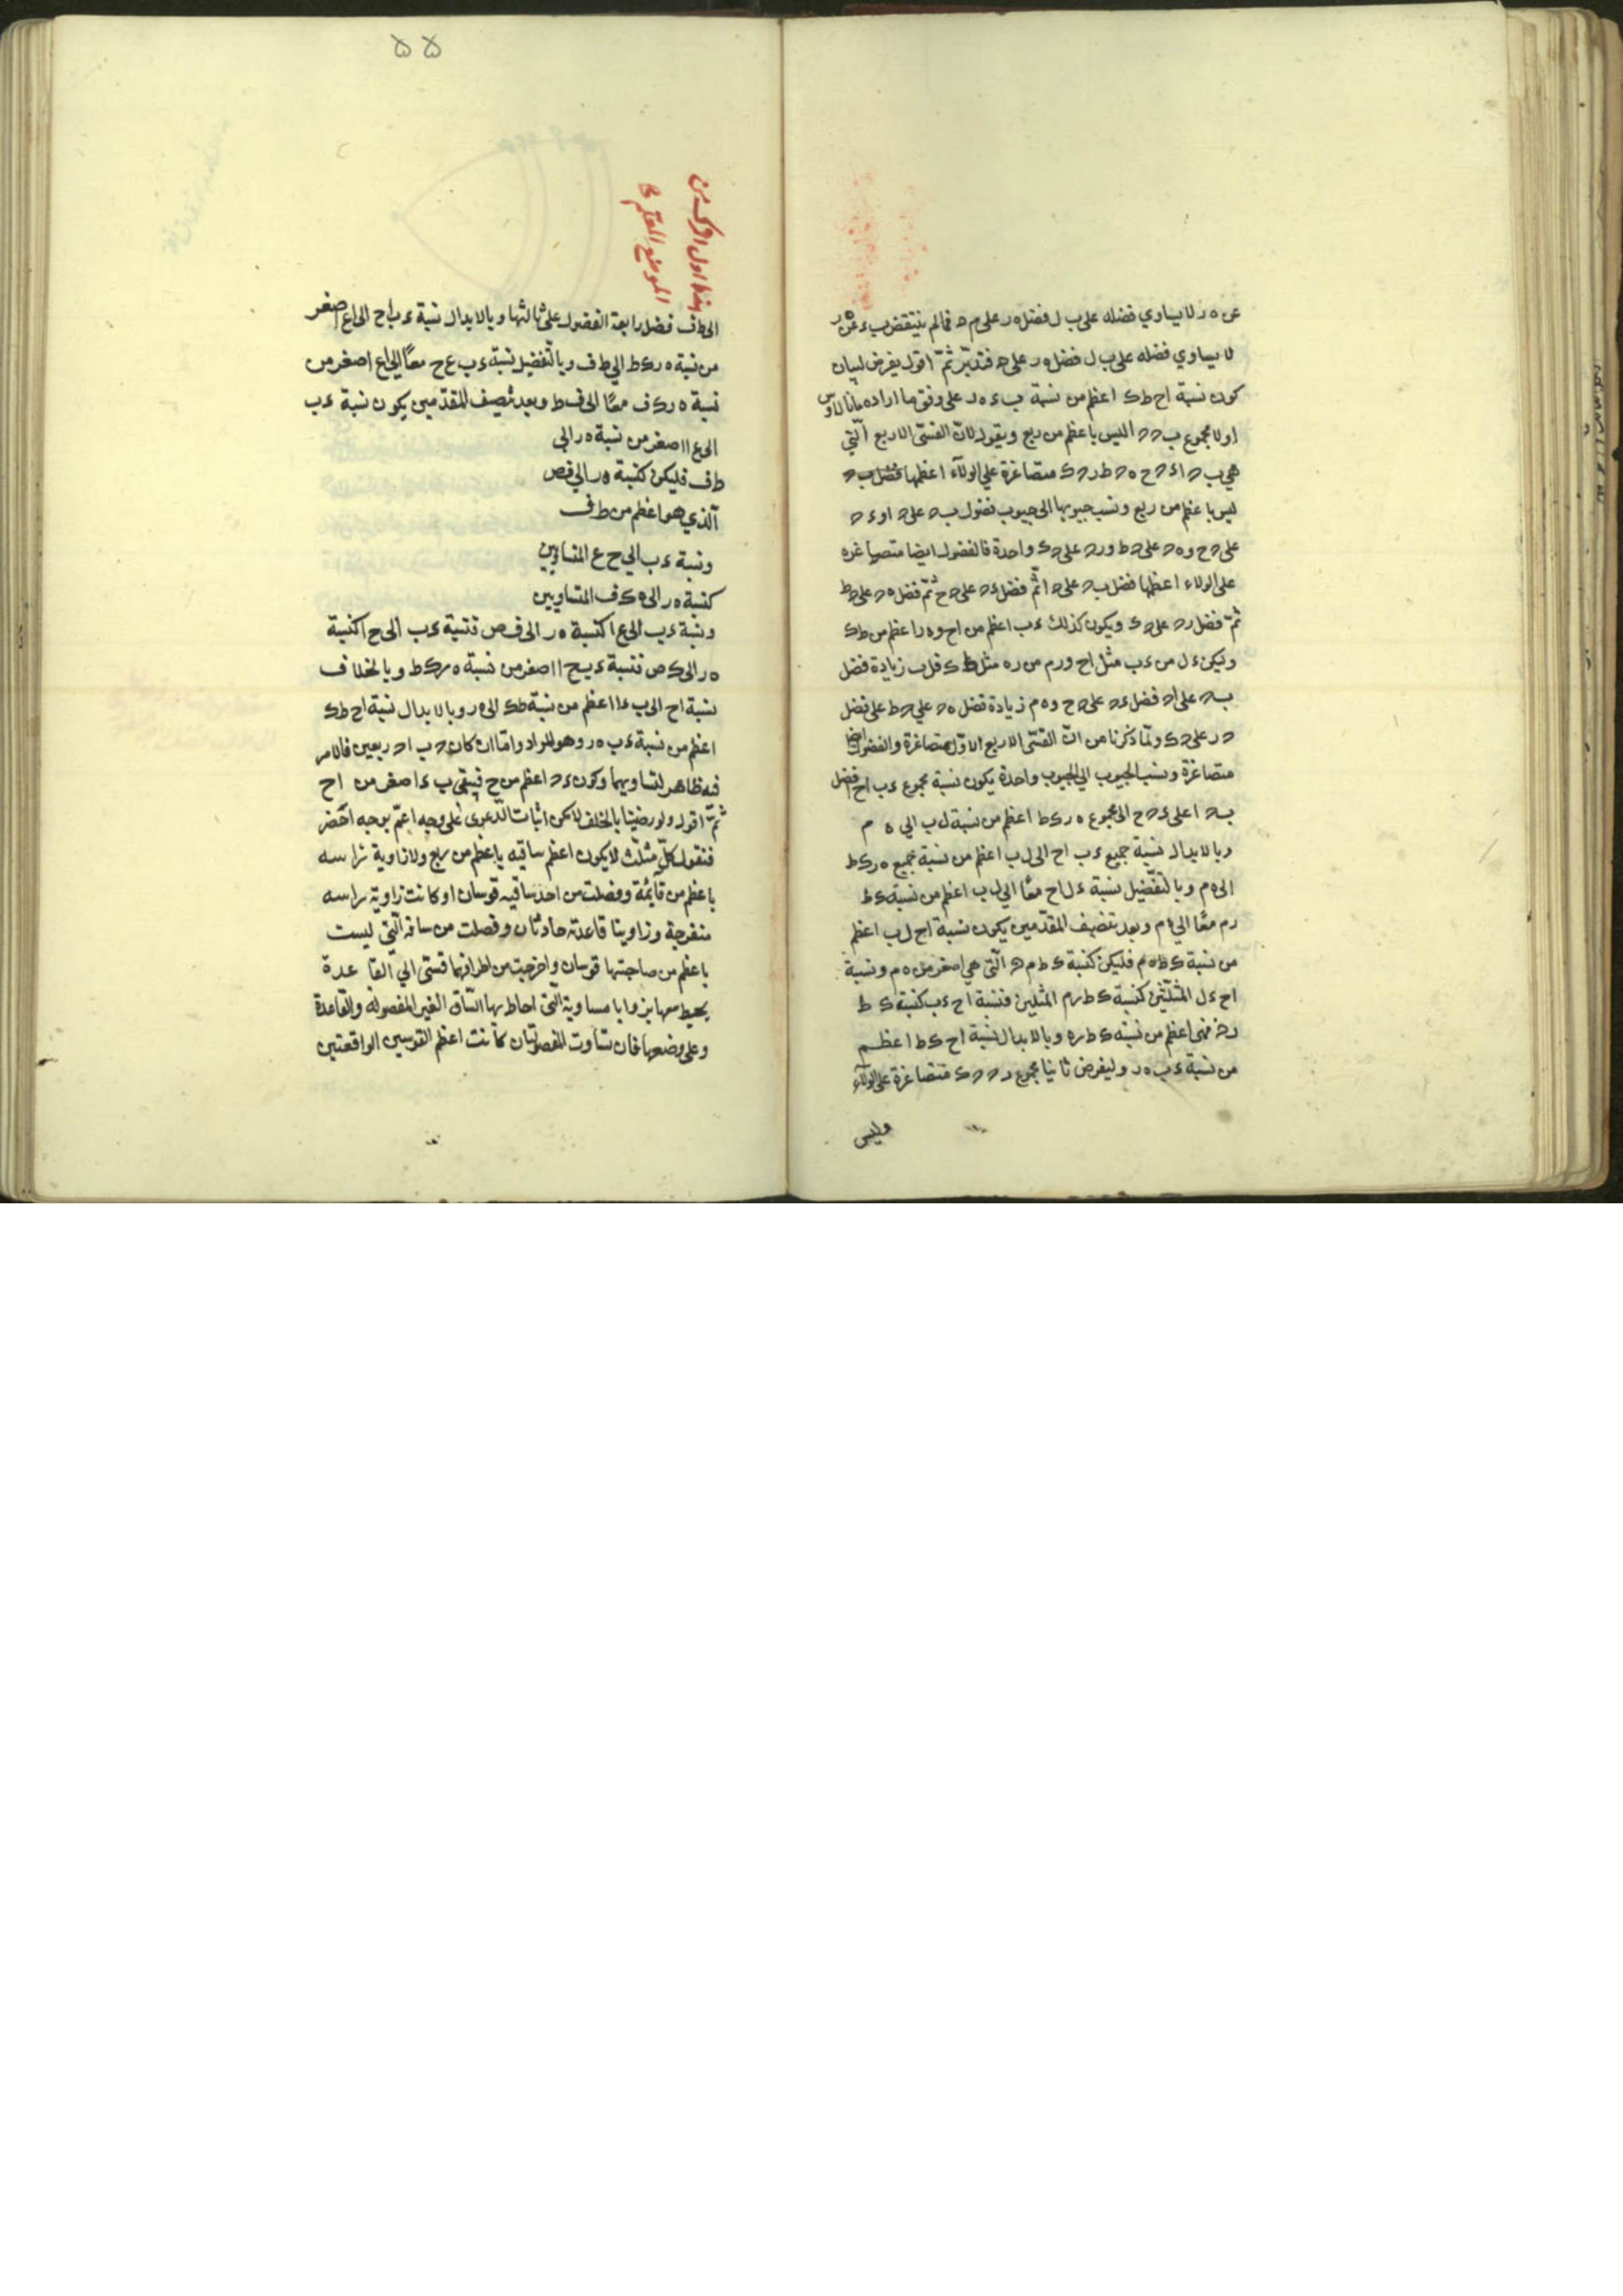 عن ه ر لا يساوي فضله على ب ل فضل ه ر على م ه فما لم ينتقض ب ء عن ر
لا يساوي فضله على ب ل فضل ه ر على ه فتدبّر ثمّ اقول يفرض لبيان
كون نسبة اح ط ك اعظم من نسبة ب ء ه ر على وفق ما اراده مانالاوس
اولا مجموع ب ح ح ا ليس باعظم من ربع ونقول لانّ القسيّ الاربع الّتي
هي ب ح ا ء ح ح ه ح ط ر ح ك متصاغرة على الولاء اعظمها
ليس باعظم من ربع ونسب جيوبها الى جيوب فضول ب ح على ح ا و ء ح
على ح ح و ه ح على ح ط و ر ح على ح ك واحدة فالفضول ايضا متصاغره
على الولاء اعظمها فضل ب ح على ح ا ثمّ فضل ء ح على ح ح ثمّ فضل ه ح على ح ط
ثمّ فضل ر ح على ح ك ويكون كذلك ء ب اعظم من اح و ه ر اعظم من ط ك
وليكن ء ل من ء ب مثل اح و ر م من ر ه مثل ط ك فل ب زيادة فضل
ب ح على ا ح فضل ء ح على ح ح و ه م زيادة فضل ه ح على ح ط على فضل
ح ر على ح ك ولما ذكرنا من انّ القسّى الاربع الاوّل متصاغرة والفضول ايضا
متصاغرة ونسب الجيوب الى الجيوب واحدة يكون نسبة مجموع ء ب اح فضل
ب ح ا على ء ح ح الى مجموع ه ر ك ط اعظم من نسبة ل ب الى ه م
وبالابدال نسبة جميع ء ب اح الى ل ب اعظم من نسبة جميع ه ر ك ط
الى ه م وبالتّفضيل نسبة ء ل اح معًا الى ل ب اعظم من نسبة ك ط
ر م معًا الى ه م وبعد تنصيف المقدّمين يكون نسبة اح ل ب اعظم
من نسبة ك ط ه م فليكن كنسبة ك ط م ه الّتي هي اصغر من ه م ونسبة
اح ء ل المثلين كنسبة ك ط ر م المثلين فنسبة اح ء ب كنسبة ك ط
فهي اعظم من نسبة ك ط ر ه وبالابدال نسبة اح ك ط اعظم
من نسبة ء ب ه ر وليفرض ثانيا مجموع ر ح ح ك متصاغرة على الولاء
وليس
۵۵
هذا اول
الموضع المعلّم
الى ط ف فضل رابعة الفضول على ثالثها وبالابدال نسبة ء ب اح الى اع اصغر
من نسبة ه ر ك ط الى ط ف وبالتّفضيل نسبة ء ب ع ح معًا الى اع اصغر من
نسبة ه ر ك ف معًا الى ف ط وبعد تنصيف المقدّمين يكون نسبة ء ب
الى ع ا اصغر من نسبة ه ر الى
ط ف فليكن كنسبة ه ر الى ف ص
الّذي هو اعظم من ط ف
ونسبة ء ب الى ح ع المتساويين
كنسبة ه ر الى ك ف المتساويين
ونسبة ء ب الى ع ا كنسبة ه ر الى ف ص فنسبة ء ب الى ح ا كنسبة
ه ر الى ك ص فنسبة ء ب ح ا اصغر من نسبة ه ر ك ط وبالخلاف
نسبة اح الى ب ء اعظم من نسبة ط ك الى ه ر وبالابدال نسبة اح ط ك
اعظم من نسبة ء ب ه ر وهو المراد وامّا ان كان ح ب ا ح ربعين فالامر
فيه ظاهر لتساويهما وكون ء ح اعظم من ح ح فيبقى ب ء اصغر من اح
ثمّ اقول ولو رضينا بالخلف لامكن اثبات الدّعوى على وجه اعمّ بوجه اخصر
فنقول كلّ مثلّث لا يكون اعظم ساقيه باعظم من ربع ولا زاوية راسه
باعظم من قائمة وفصلت من احد ساقيه قوسان او كانت زاوية راسه
منفرجة وزاويتا قاعدته حادتان وفصلت من ساقه الّتي ليست
باعظم من صاحبتها قوسان واخرجت من اطرافهما قسّى الى القاعدة
يحيط معها بزوايا مساوية الّتي احاط بها السّاق الغير المفصوله والقاعدة
وعلى وضعها فان تساوت المفصولتان كانت اعظم القوسين الواقعتين